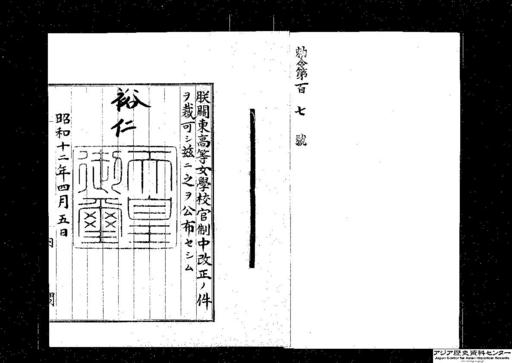 勅令第百七號
朕關東高等女學校官制中改正ノ件
ヲ裁可シ茲ニ之ヲ公布セシム
裕仁
天皇御璽
昭和十二年四月五日
内閣
アジア歴史資料センター
Japan Center for Asian Historical Records